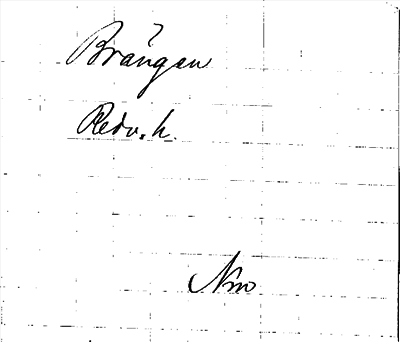 Brången
Redv. h.
Nro